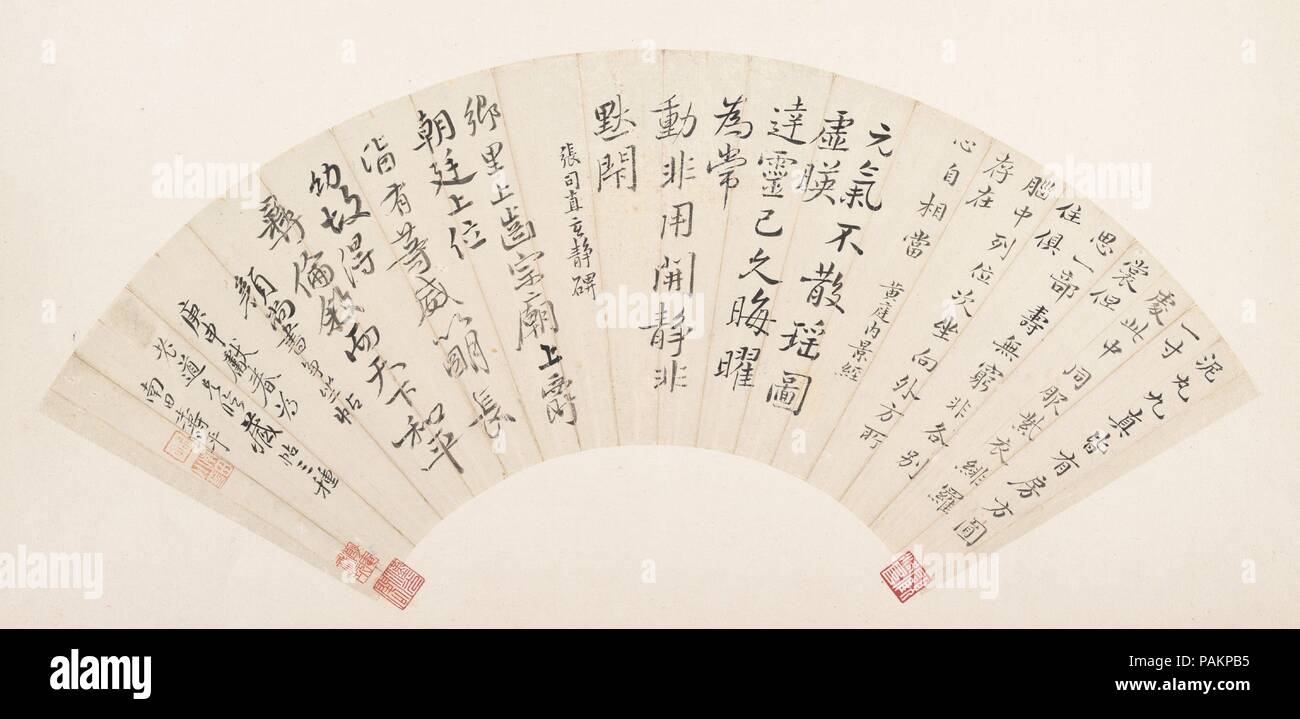 泥丸九真皆有房方圓
一寸
處此中同服紫衣緋羅
裳但
思一部壽無窮非各別
住俱
腦中列位次坐向外方所
存在
心自相當
黃庭內景經
元氣不散瑤圖
虛暎
達靈已久晦曜
為常
動非用開靜非
默閉
張司直玄靜碑
鄉里上齒宗廟上爵
朝廷上位
皆有等威以明長
幼故得
彝倫敘而天下和平
顏尚書爭坐帖
庚申獻春為
道長臨藏帖三種
南田壽平
alamy
Image ID: PAKPB5
www.alamy.com